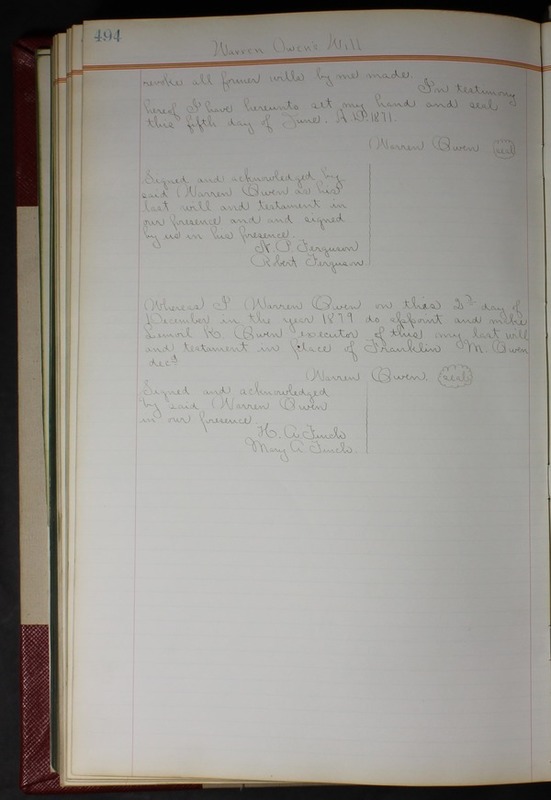 494
Warren Owen's Will
revoke all former wills by me made.
I'm testimony
hereof I have hereunto set my hand and seal
this fifth day of June. A.D. 1871.
Warren Owen (seal)
Signed and acknowledged by
said Warren Owen as his
last will and testament in
our presence and and signed
by us in his presence.
N. P. Ferguson
Robert Ferguson
Whereas I Warren Owen on this 2nd day of
December in the year 1879 do appoint and make
R. Owen executor of this my last will
and testament in place of Franklin M. Owen
decd
Warren Owen. (seal)
Signed and acknowledged
by said Warren Owen
in our presence.
H. A. Finch
Mary A Finch.